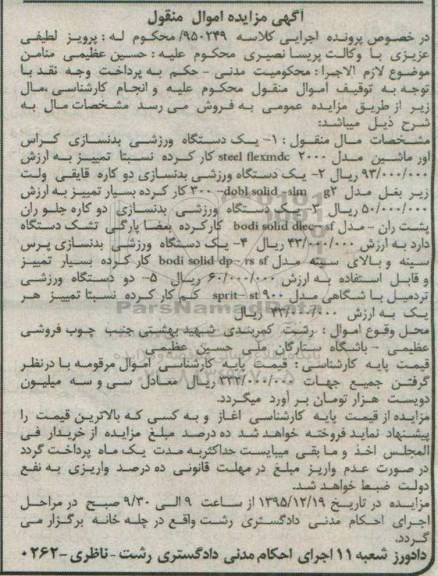 آگهی مزایده اموال منقول
در خصوص پرونده اجرایی کلاسه ۹۵۰۲۴۹/ محکوم له : پرویز لطیفی
عزیزی با وکالت پریسا نصیری محکوم علیه : حسین عظیمی منامن
موضوع لازم الاجرا : محکومیت مدنی - حکم به پرداخت وجه نقد با
توجه به توقیف اموال منقول محکوم علیه و انجام کارشناسی ،مال
زیر از طریق مزایده عمومی به فروش می رسد مشخصات مال به
شرح ذیل میباشد:
مشخصات مال منقول : ۱- یک دستگاه ورزشی بدنسازی کراس
اور ماشین مدل steel flexmdc ۲۰۰۰ کار کرده نسبتا تمییز به ارزش
۹۳/۰۰۰/۰۰۰ ریال ۲- یک دستگاه ورزشی بدنسازی دو کاره قایقی ولت
زیر بغل مدل dobl solid -slm g۲ -۳۰۰ کار کرده بسیار تمییز به ارزش
۵۰/۰۰۰/۰۰۰ ریال ۳- یک دستگاه ورزشی بدنسازی دو کاره جلو ران
پشت ران - مدل bodi solid dlec sf کارکرده بعضا پارگی تشک دستگاه
دارد به ارزش ۴۳/۰۰۰/۰۰۰ ریال ۴- یک دستگاه ورزشی بدنسازی پرس
سینه و بالای سینه مدل bodi solid -dp - rs sf کار کرده بسیار تمییز
و قابل استفاده به ارزش ۶۰/۰۰۰/۰۰۰ ریال ۵- دو دستگاه ورزشی
تردمیل با شگاهی مدل sprit - st ۹۰۰ کم کار کرده نسبتا تمییز هر
یک به ارزش ۰۰۰/۰۰۰ ریال
محل وقوع اموال : رشت کمربندی شهید بهشتی جنب چوب فروشی
عظیمی - باشگاه ستارگان ملی حسین عظیمی
قیمت پایه کارشناسی : قیمت پایه کارشناسی اموال مرقومه با درنظر
گرفتن جمیع جهات ۳۳۲/۰۰۰/۰۰۰ ریال معادل سی و سه میلیون
دویست هزار تومان بر آورد میگردد.
مزایده از قیمت پایه کارشناسی اغاز و به کسی که بالاترین قیمت را
پیشنهاد نماید فروخته خواهد شد ده درصد مبلغ مزایده از خریدار فی
المجلس اخذ و ما بقی میبایست حداکثر به مدت یک ماه پرداخت گردد
در صورت عدم واریز مبلغ در مهلت قانونی ده درصد واریزی به نفع
دولت ضبط خواهد شد.
مزایده در تاریخ ۱۳۹۵/۱۲/۱۹ از ساعت ۹ الی ۹/۳۰ صبح در مراحل
اجرای احکام مدنی دادگستری رشت واقع در چله خانه برگزار می
گردد.
دادورز شعبه ۱۱ اجرای احکام مدنی دادگستری رشت - ناظری - ۰۲۶۲